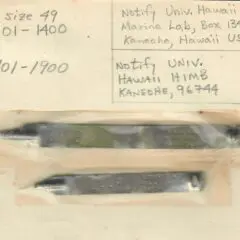 size 49
01-1400
Notify Univ. Hawaii
Marine Lab, Box 13
Kaneohe, Hawaii US
01-1900
NOTIFY UNIV.
HAWAII HIMB
KANEOHE, 96744